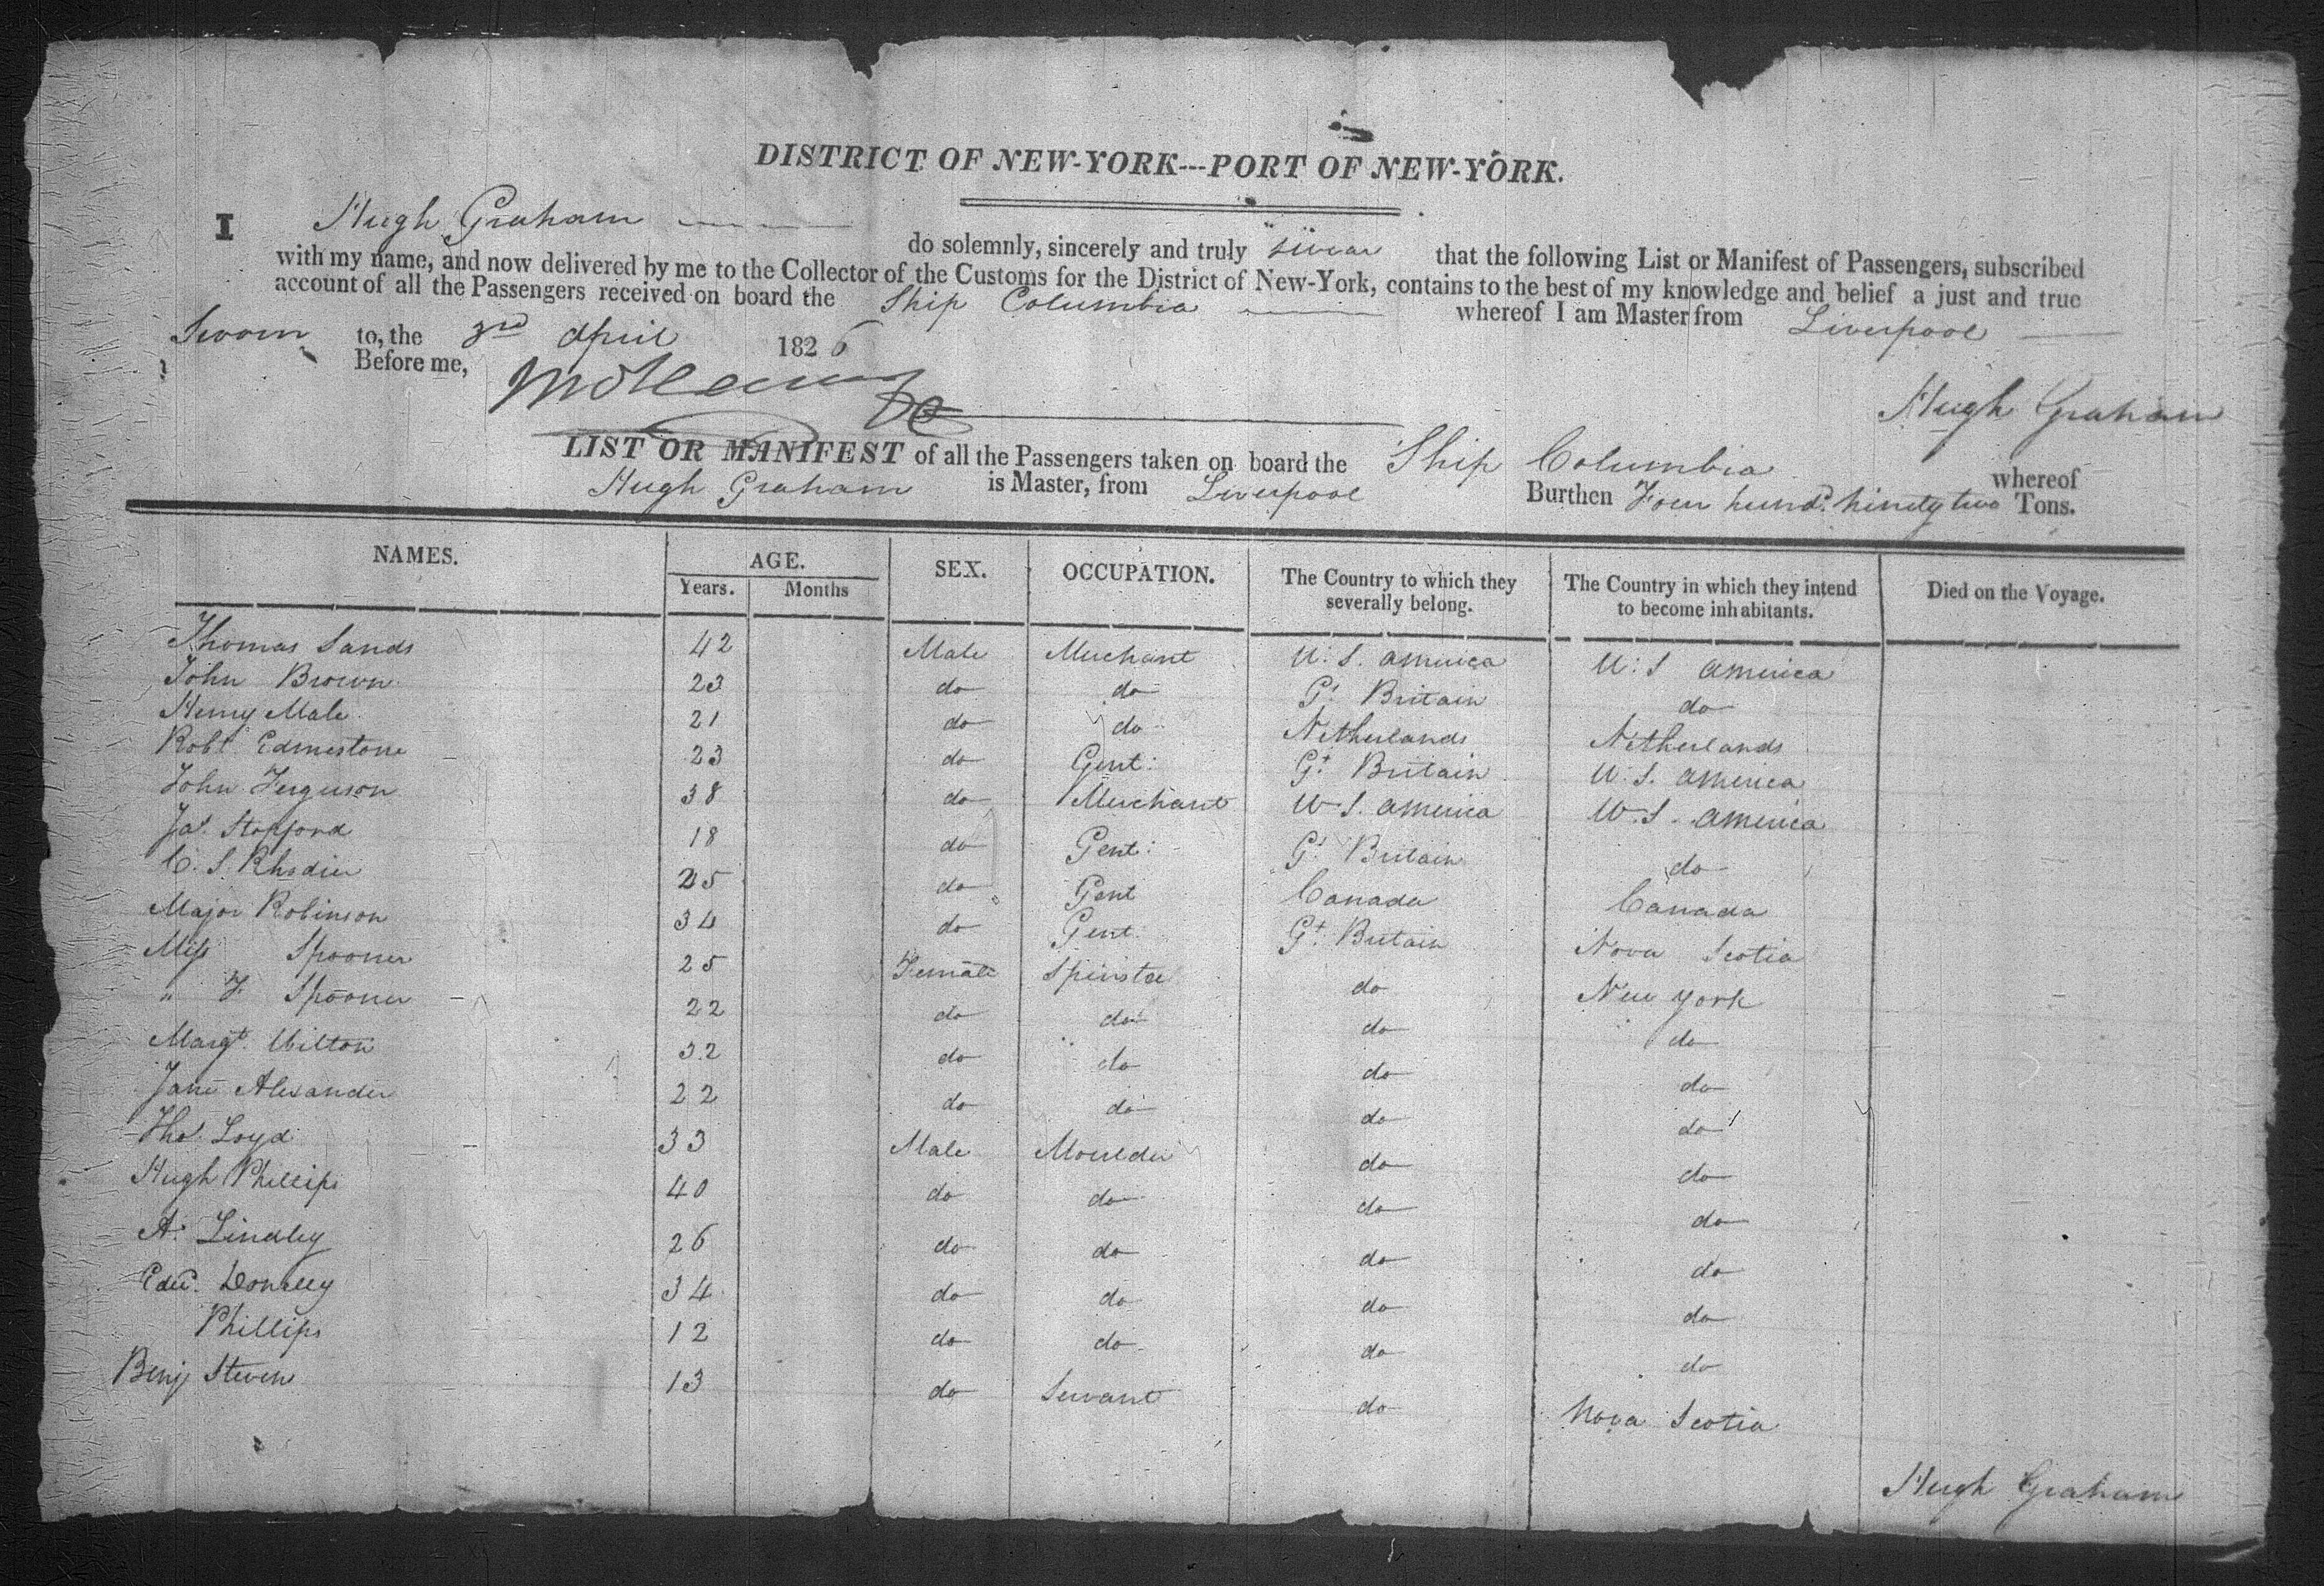 DISTRICT OF NEW-YORK---PORT OF NEW-YORK.
I Hugh Graham do solemnly, sincerely and truly swear that the following List or Manifest of Passengers, subscribed
with my name, and now delivered by me to the Collector of the Customs for the District of New-York, contains to the best of my knowledge and belief a just and true
account of all the Passengers received on board the Ship Columbia whereof I am Master from Liverpool
Sworn to, the 3rd April 1826
Before me,
Hugh Graham
LIST OR MANIFEST of all the Passengers taken on board the Ship Columbia whereof
Hugh Graham is Master, from Liverpool Burthen Four hund. ninety two Tons.
NAMES. AGE. SEX. OCCUPATION. The Country to which they severally belong. The Country in which they intend to become inhabitants. Died on the Voyage.
Years. Months
Thomas Sands 42 Male Merchant U.S. America U.S America
John Brown 23 do do Gt Britain do
Henry Male 21 do do Netherlands Netherlands
Robt. Edmestone 23 do Gent: Gt. Britain U.S. America
John Ferguson 38 do Merchant U.S. America U.S. America
Jas. Stopford 18 do Gent: Gt Britain do
C. S. Rhodier 25 do Gent Canada Canada
Major Robinson 34 do Gent Gt. Britain Nova Scotia
Miss Spooner 25 Female Spinster do New York
" F Spooner 22 do do do do
Margt. Wilton 32 do do do do
Jane Alexander 22 do do do do
Thos. Loyd 33 Male Moulder do do
Hugh Phillips 40 do do do do
A. Lindley 26 do do do do
Edwd. Donelly 34 do do do do
Phillips 12 do do do do
Benj Steven 13 do Servant do Nova Scotia
Hugh Graham